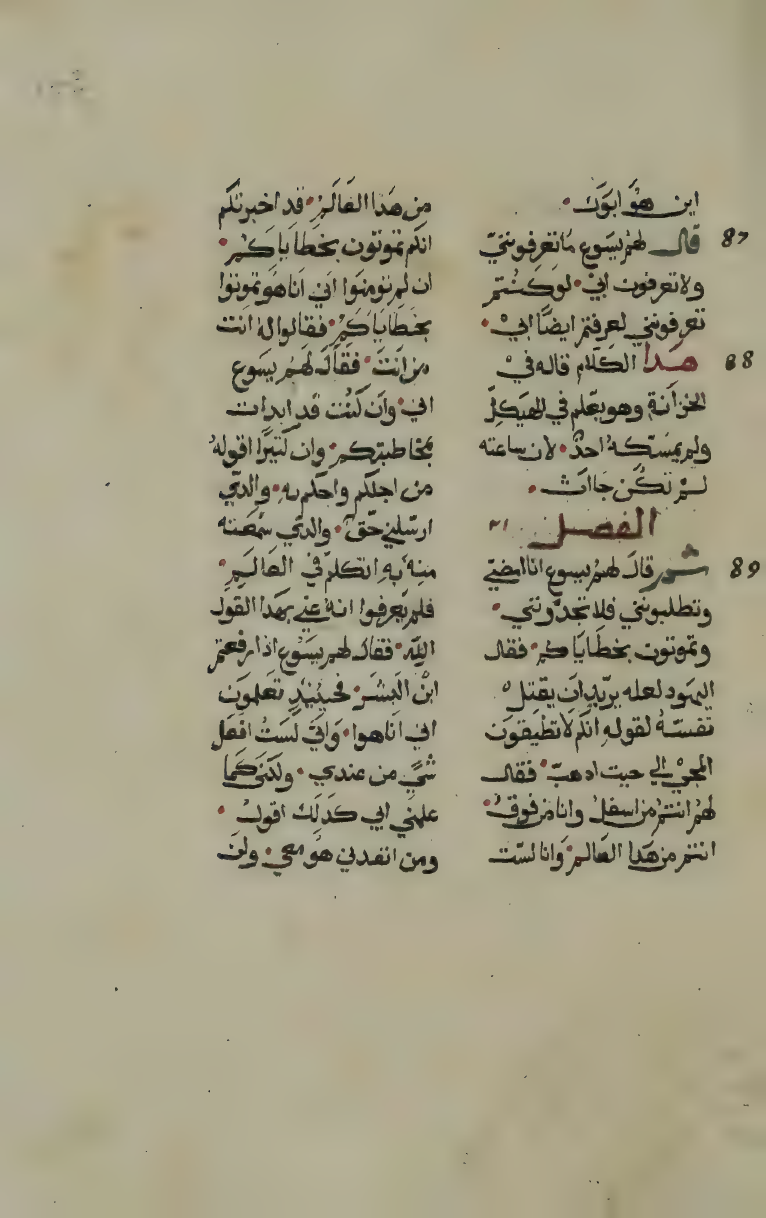 اين هو ابوك.
87 قال لهم يسوع ما تعرفونني
ولا تعرفون ابي. لو كنتم
تعرفونني لعرفتم ايضًا ابي.
88 هدا الكلام قاله في
الخزانة وهو يعلم في الهيكل
ولم يمسكه احد. لان ساعته
لم تكن جاات.
الفصل ٢١
89 ثم قال لهم يسوع انا امضي
وتطلبونني فلا تجدونني.
وتموتون بخطاياكم. فقال
اليهود لعله يريد ان يقتل
نفسه لقوله انكم لا تطيقون
المجي الي حيت ادهب. فقال
لهم انتم من اسفل وانا من فوق.
انتم من هدا العالم. وانا لست
من هدا العالم. قد اخبرتكم
انكم تموتون بخطاياكم.
ان لم تومنوا اني انا هو تموتوا
بخطاياكم. فقالوا له انت
من انت. فقال لهم يسوع
اني وان كنت قد ابدات
بمخاطبتكم. وان كتيرًا اقوله
من اجلكم واحكم به. والدي
ارسلني حق. والدي سمعته
منه به اتكلم في العالم.
فلم يعرفوا انه عني بهدا القول
الله. فقال لهم يسوع ادا رفعتم
ابن البشر. فحينيد تعلمون
اني انا هوا. واني لست افعل
شي من عندي. ولكني كما
علمني ابي كدلك اقول.
ومن انفدني هو معي. ولن